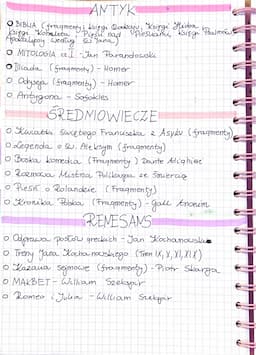 ANTYK
BIBLIA (fragmenty) księgi Rodzaju, Księgi Hioba
księgi Koheleta, Pieśni nad Pieśniami, księgi Psalmów
Apokalipsy według św. Jana)
MITOLOGIA cz. I - Jan Parandowski
Iliada (fragmenty) - Homer
Odyseja (fragmenty) - Homer
Antygona - Sofokles
ŚREDNIOWIECZE
Kwiatki Świętego Franciszka z Asyżu (fragmenty)
Legenda o św. Aleksym (fragmenty)
Boska komedia (Fragmenty) Dante Alighieri
Rozmowa Mistrza Polikarpa ze Śmiercią
Pieśń o Rolandzie (Fragmenty)
Kronika Polska (Fragmenty) - Gall Anonim
RENESANS
Odprawa posłów greckich - Jan Kochanowski
Treny Jana Kochanowskiego (Tren IX, X, XI, XIX)
Kazania sejmowe (fragmenty) - Piotr Skarga
MAKBET - William Szekspir
Romeo i Julia - William Szekspir